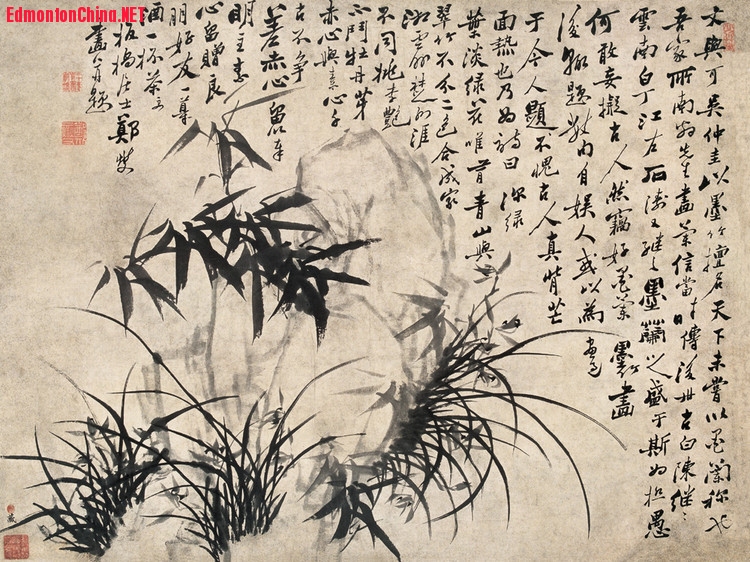 EdmontonChina.NET
文與可吳仲圭以墨竹擅名天下未嘗以墨蘭稱也
吾家所南翁先生畫蘭信當時傳後世古白陳
雲南白丁江左石濤又繼之墨蘭之盛于斯為極愚
何敢妄擬古人然竊好墨蘭墨竹畫
後輒題數句自娛人或以為畫過
于今人題不愧古人真背芒
面熱也乃為詩曰 深綠
葉淡綠花唯有青山與
翠竹不分二色合成家
湘雲楚雨
不同桃李艷
不鬥牡丹芽
赤心與素心千
古不爭
差赤心留奉
明主素
心留贈良
朋好友一尊
酒一杯茶
板橋居士鄭燮
畫并題